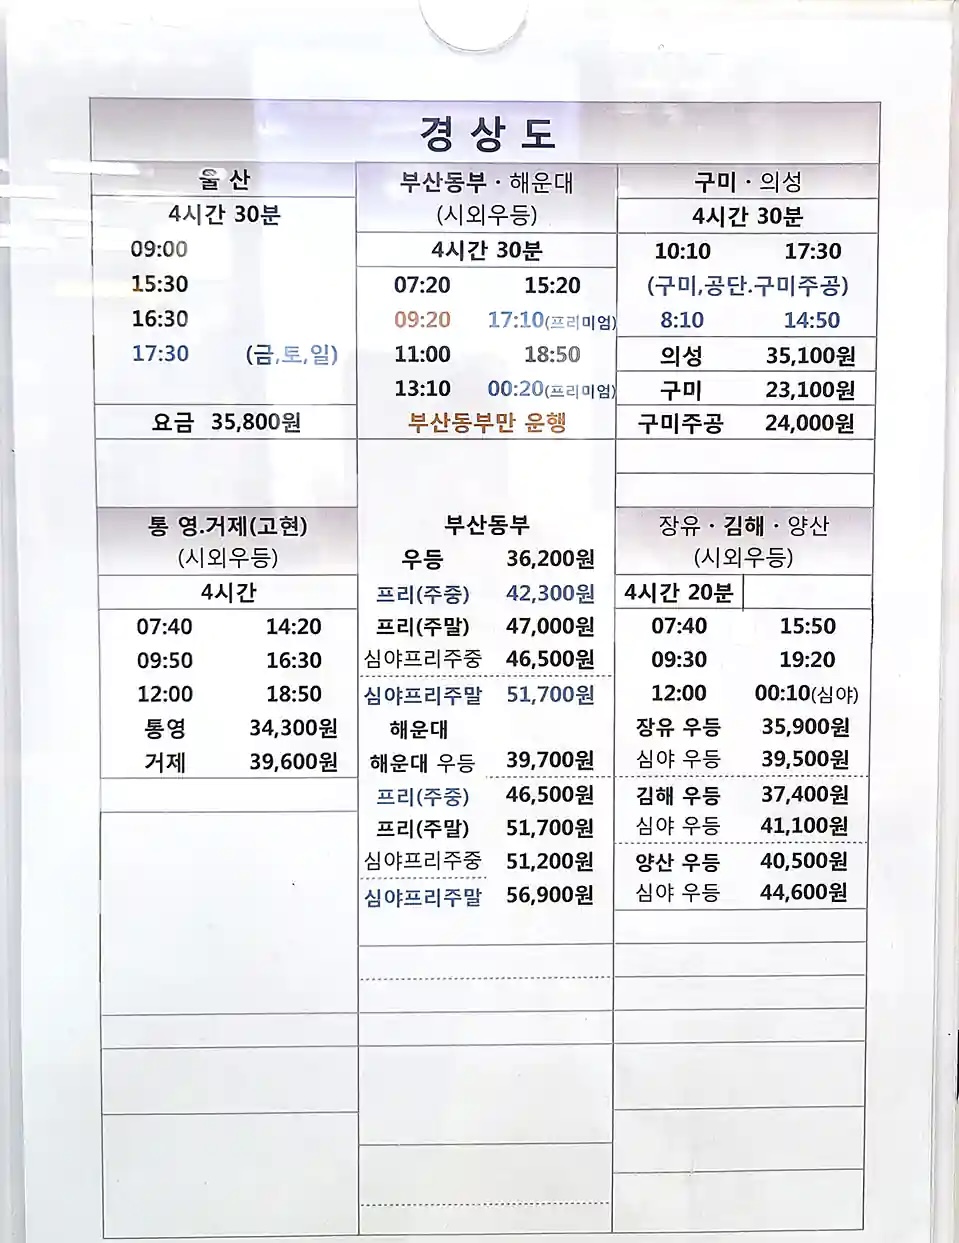 경 상 도
울 산
4시간 30분
09:00
15:30
16:30
17:30 (금,토,일)
요금 35,800원
부산동부 · 해운대
(시외우등)
4시간 30분
07:20 15:20
09:20 17:10(프리미엄)
11:00 18:50
13:10 00:20(프리미엄)
부산동부만 운행
구미 · 의성
4시간 30분
10:10 17:30
(구미,공단.구미주공)
8:10 14:50
의성 35,100원
구미 23,100원
구미주공 24,000원
통 영.거제(고현)
(시외우등)
4시간
07:40 14:20
09:50 16:30
12:00 18:50
통영 34,300원
거제 39,600원
부산동부
우등 36,200원
프리(주중) 42,300원
프리(주말) 47,000원
심야프리주중 46,500원
심야프리주말 51,700원
해운대
해운대 우등 39,700원
프리(주중) 46,500원
프리(주말) 51,700원
심야프리주중 51,200원
심야프리주말 56,900원
장유 · 김해 · 양산
(시외우등)
4시간 20분
07:40 15:50
09:30 19:20
12:00 00:10(심야)
장유 우등 35,900원
심야 우등 39,500원
김해 우등 37,400원
심야 우등 41,100원
양산 우등 40,500원
심야 우등 44,600원